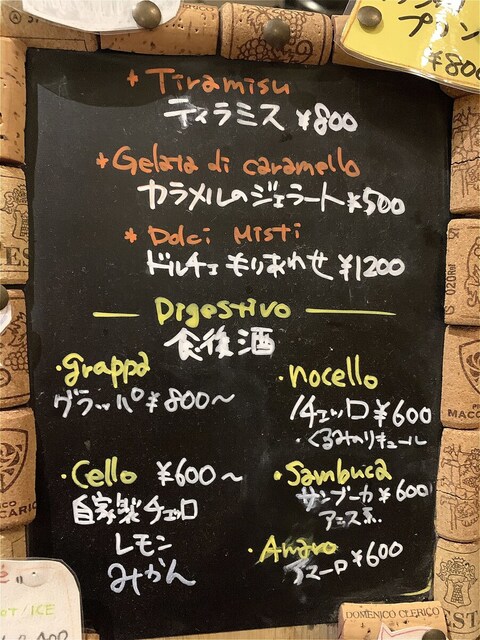 プリン
¥800
* Tiramisu
ティラミス ¥800
* Gelata di caramello
カラメルのジェラート ¥500
* Dolci Misti
ドルチェ もりあわせ ¥1200
Digestivo
食後酒
・grappa
グラッパ ¥800〜
・nocello
ノチェッロ ¥600
・くるみのリキュール
・Cello ¥600〜
自家製チェッロ
レモン
みかん
・Sambuca
サンブーカ ¥600
アニス系
・Amaro
アマーロ ¥600
OT/ICE
DOMENICO CLERICO